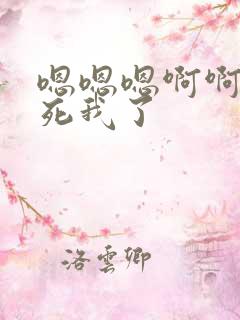 嗯嗯嗯啊啊
死我了
洛雲卿